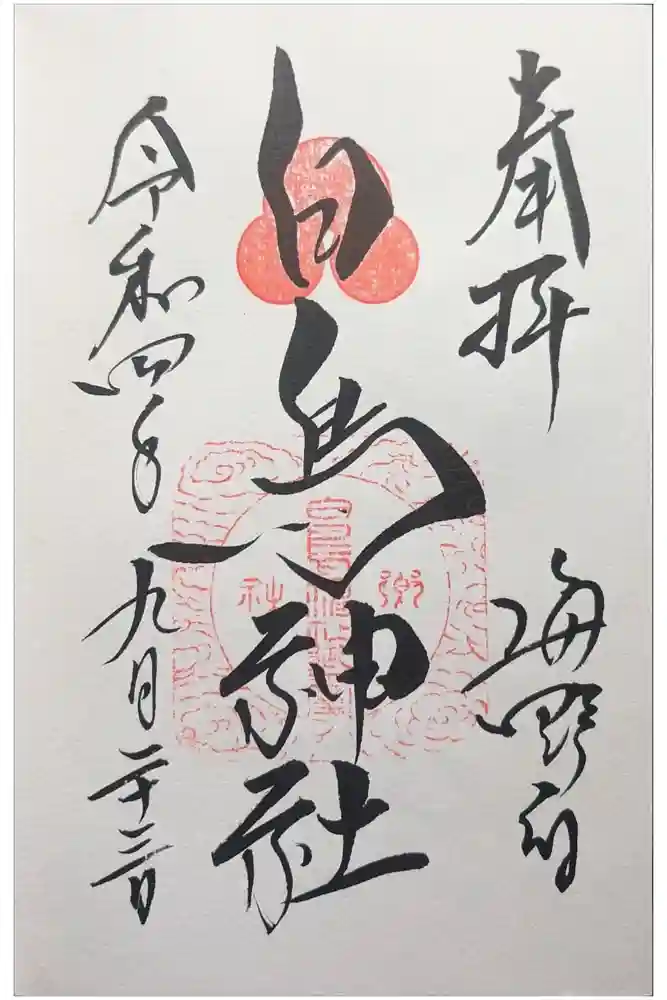 奉拝
海野宿
白鳥神社
令和四年九月二十三日